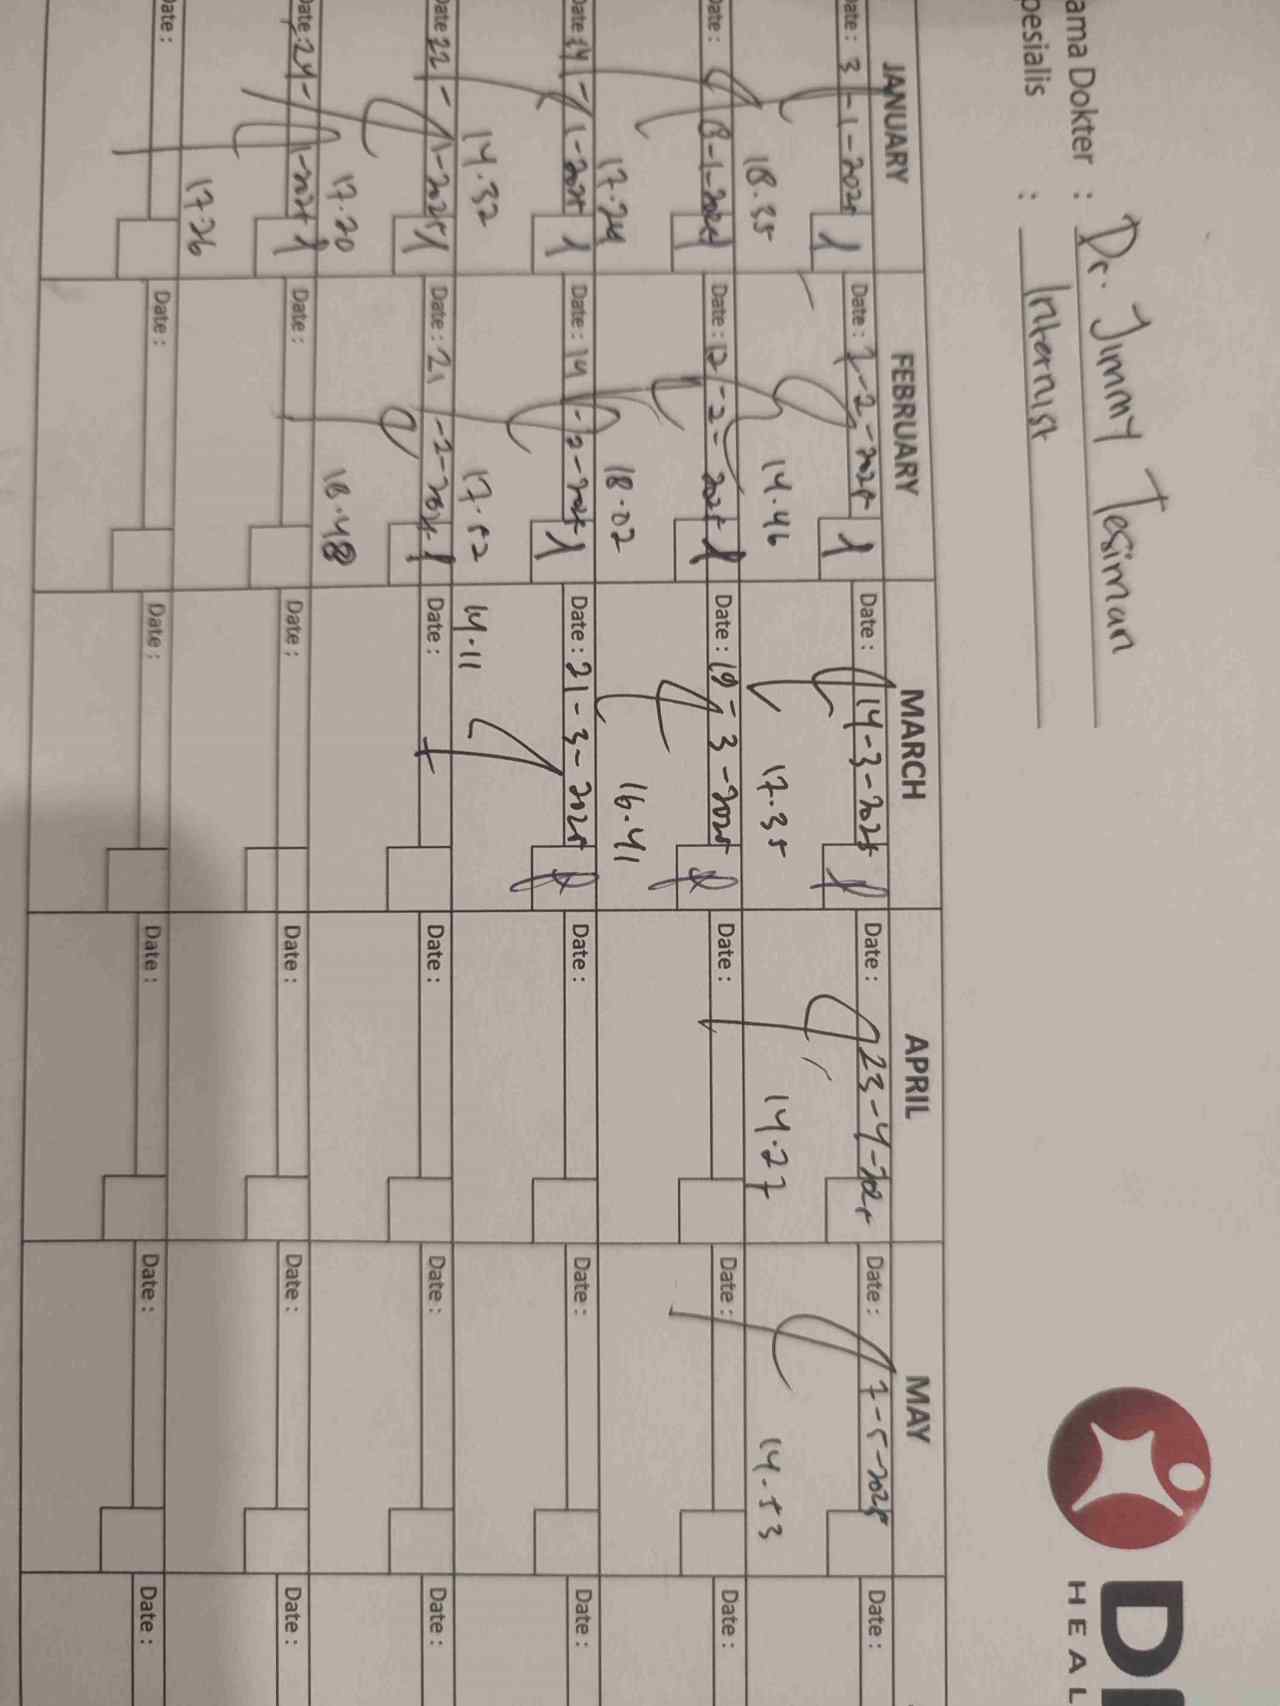 ama Dokter : Dr. Jimmy Tesiman
pesialis : Internist
D
HEAL
JANUARY FEBRUARY MARCH APRIL MAY
Date : 3-1-2025 Date : 7-2-2025 Date : 14-3-2025 Date : 23-4-2025 Date : 7-5-2025 Date :
18.35 14.46 17.35 14.27 14.53
Date : 8-1-2025 Date : 12-2-2025 Date : 19-3-2025 Date : Date : Date :
17.24 18.02 16.41
Date : 14-1-2025 Date : 14-2-2025 Date : 21-3-2025 Date : Date : Date :
14.32 17.52 14.11
Date : 22-1-2025 Date : 21-2-2025 Date : Date : Date : Date :
17.20 18.48
Date : 24-1-2025 Date : Date : Date : Date : Date :
17.26
Date : Date : Date : Date : Date : Date :